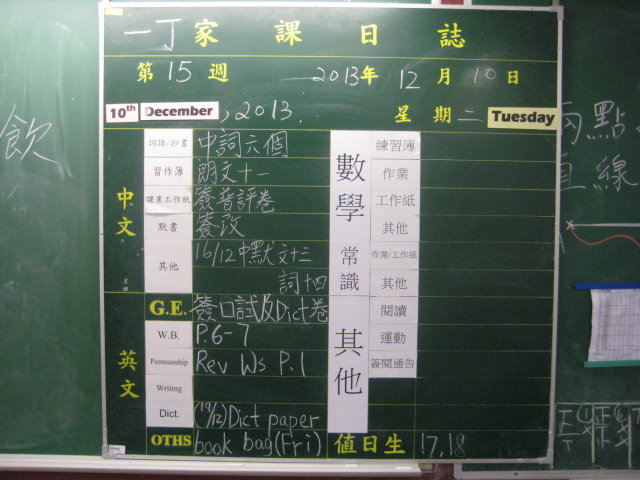 一丁家課日誌
第15週 2013年12月10日
10th December, 2013. 星期二 Tuesday
詞語/抄書 中詞六個
習作簿 朗文十一
課業工作紙 簽普評卷
默書 簽改
其他 16/12中默文十二
詞十四
中文
G.E. 簽口試及Dict卷
W.B. P.6-7
Penmanship Rev Ws P.1
Writing
Dict. (19/12)Dict paper
OTHS book bag(Fri)
英文
數學
練習簿
作業
工作紙
其他
常識
作業/工作紙
其他
其他
閱讀
運動
簽閱通告
值日生 17,18
飲
兩點
直線